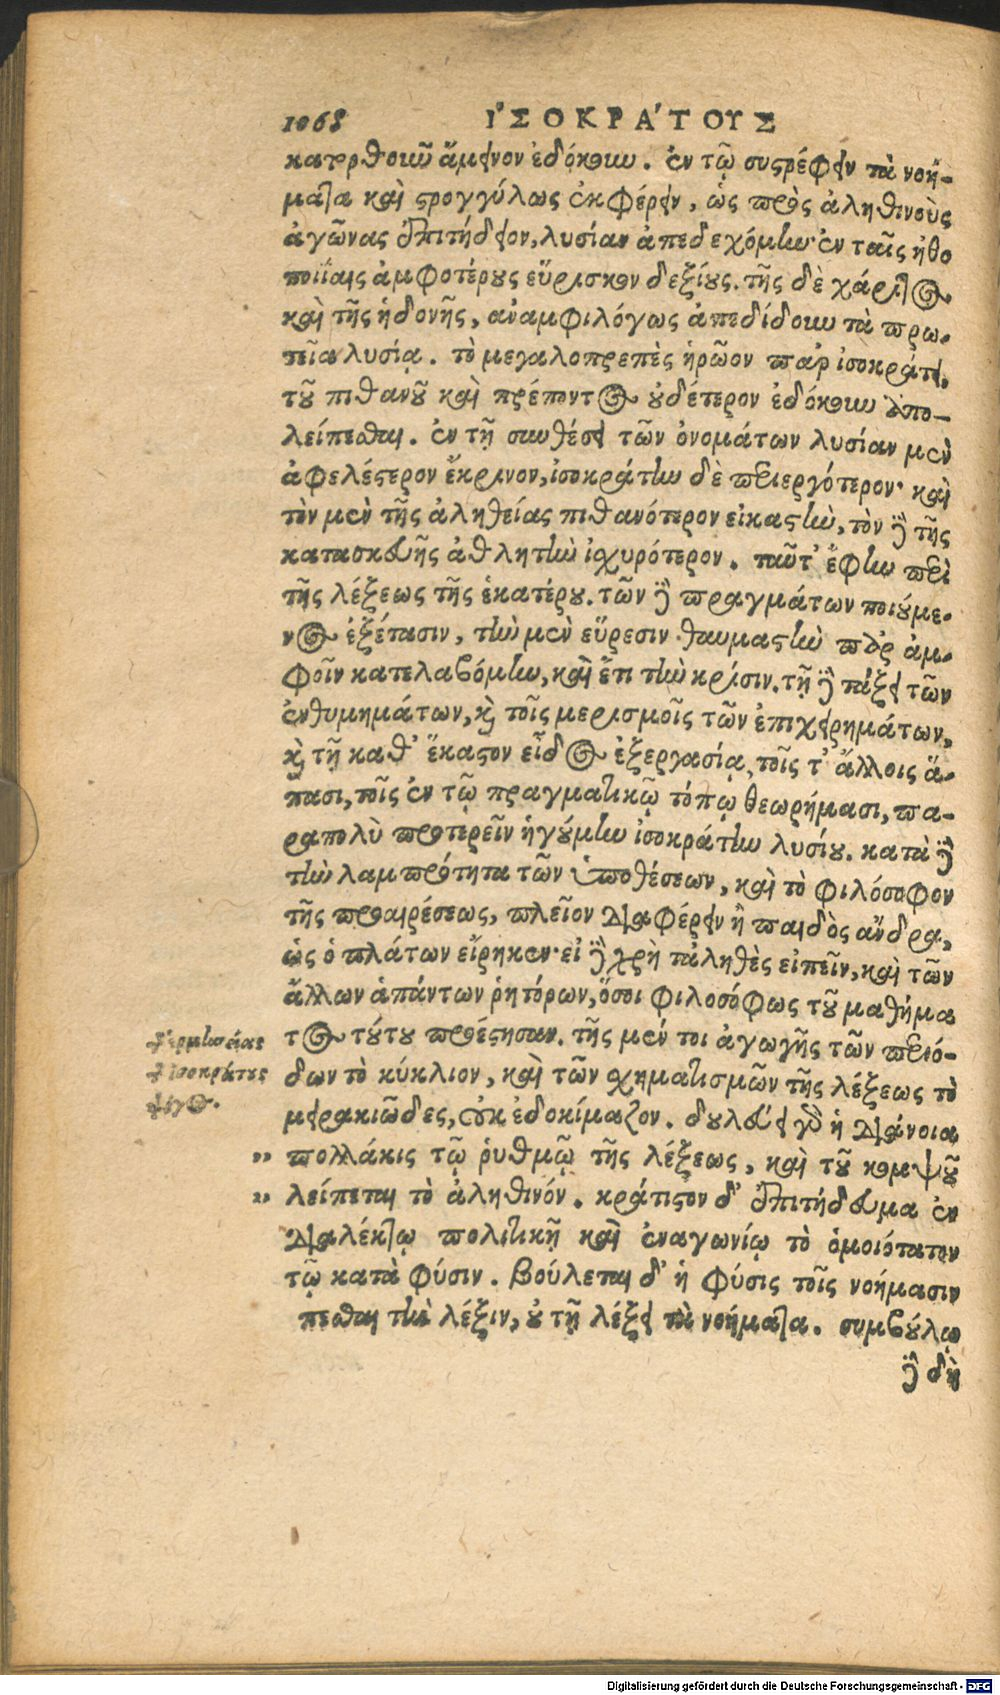 1068 ἸΣΟΚΡΆΤΟΥΣ
κατορθοῦν ἄμεινον ἐδόκουν. ἐν τῷ συστρέφειν τὰ νοή-
ματα καὶ στρογγύλως ἐκφέρειν, ὡς πρὸς ἀληθινοὺς
ἀγῶνας ἐπιτήδειον, λυσίαν ἀπεδεχόμην· ἐν ταῖς ἠθο
ποιΐαις ἀμφοτέρους εὕρισκον δεξιούς. τῆς δὲ χάριτος
καὶ τῆς ἡδονῆς, ἀναμφιλόγως ἀπεδίδουν τὰ πρω-
τεῖα λυσίᾳ. τὸ μεγαλοπρεπὲς ἡρῶον παρ' ἰσοκράτει,
τοῦ πιθανοῦ καὶ πρέποντος οὐδέτερον ἐδόκουν ἀπο-
λείπεσθαι. ἐν τῇ συνθέσει τῶν ὀνομάτων λυσίαν μὲν
ἀφελέστερον ἔκρινον, ἰσοκράτην δὲ περιεργότερον· καὶ
τὸν μὲν τῆς ἀληθείας πιθανότερον εἰκαστὴν, τὸν δὲ τῆς
κατασκευῆς ἀθλητὴν ἰσχυρότερον. ταῦτ' ἔφην περὶ
τῆς λέξεως τῆς ἑκατέρου. τῶν δὲ πραγμάτων ποιούμε-
νος ἐξέτασιν, τὴν μὲν εὕρεσιν θαυμαστὴν παρ' ἀμ-
φοῖν κατελαβόμην, καὶ ἔτι τὴν κρίσιν. τῇ δὲ τάξει τῶν
ἐνθυμημάτων, καὶ τοῖς μερισμοῖς τῶν ἐπιχειρημάτων,
καὶ τῇ καθ' ἕκαστον εἶδος ἐξεργασίᾳ, τοῖς τ' ἄλλοις ἅ-
πασι, τοῖς ἐν τῷ πραγματικῷ τόπῳ θεωρήμασι, πα-
ραπολὺ προτερεῖν ἡγούμην ἰσοκράτην λυσίου. κατὰ δὲ
τὴν λαμπρότητα τῶν ὑποθέσεων, καὶ τὸ φιλόσοφον
τῆς προαιρέσεως, πλεῖον διαφέρειν ἢ παιδὸς ἄνδρα,
ὡς ὁ πλάτων εἴρηκεν· εἰ δὲ χρὴ τἀληθὲς εἰπεῖν, καὶ τῶν
ἄλλων ἁπάντων ῥητόρων, ὅσοι φιλοσόφως τοῦ μαθήμα
τος τούτου προέστησαν. τῆς μέν τοι ἀγωγῆς τῶν περιό-
δων τὸ κύκλιον, καὶ τῶν σχηματισμῶν τῆς λέξεως τὸ
μειρακιῶδες, οὐκ ἐδοκίμαζον. δουλεύει γὰρ ἡ διάνοια
πολλάκις τῷ ῥυθμῷ τῆς λέξεως, καὶ τοῦ κομψοῦ
λείπεται τὸ ἀληθινόν. κράτιστον δ' ἐπιτήδευμα ἐν
διαλέκτῳ πολιτικῇ καὶ ἐναγωνίῳ τὸ ὁμοιότατον
τῷ κατὰ φύσιν. βούλεται δ' ἡ φύσις τοῖς νοήμασιν
πεσθαι τὴν λέξιν, οὐ τῇ λέξει τὰ νοήματα. συμβούλῳ
δὲ δὴ
τῆς ἑρμηνείας
τῆς ἰσοκράτους
ψόγος.